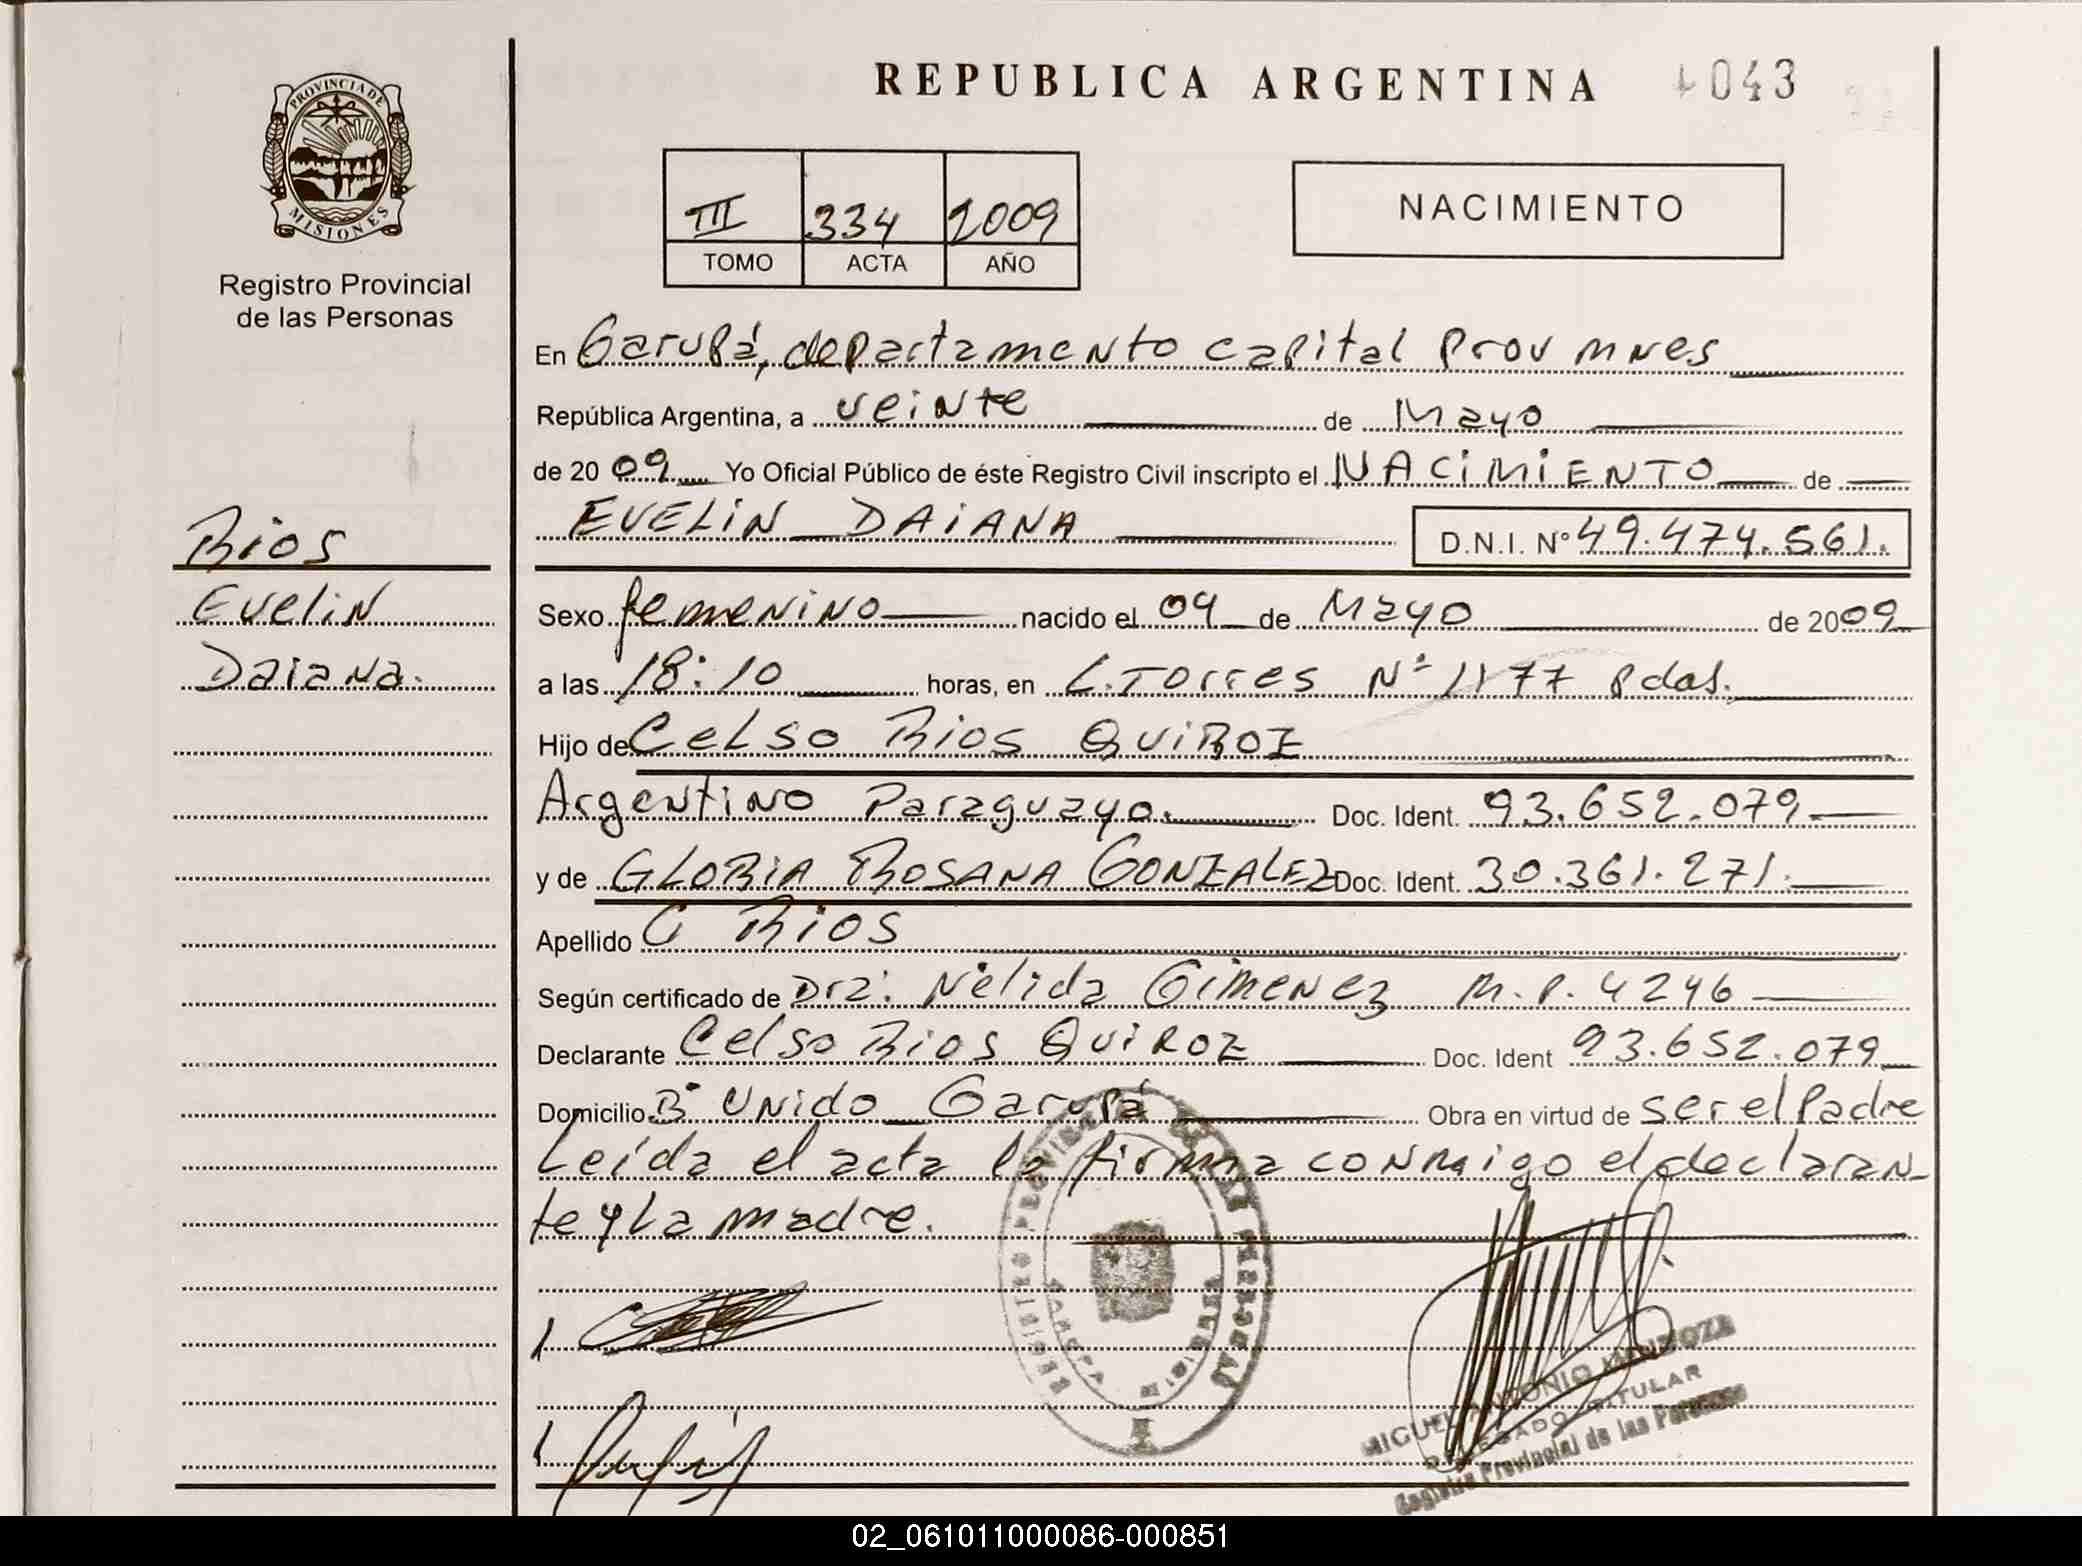 REPUBLICA ARGENTINA 043
PROVINCIA DE
MISIONES
Registro Provincial
de las Personas
III 334 2009
TOMO ACTA AÑO
NACIMIENTO
En Garupá, departamento capital Prov mnes
República Argentina, a veinte de Mayo
de 20 09 Yo Oficial Público de éste Registro Civil inscripto el NACIMIENTO de
EVELIN DAIANA D.N.I. Nº 49.474.561.
Rios
Evelin
Daiana.
Sexo femenino nacido el 09 de Mayo de 2009
a las 18:10 horas, en L. Torres Nº 1177 Pdas.
Hijo de Celso Rios QUIROZ
Argentino Paraguayo. Doc. Ident. 93.652.079.
y de GLORIA ROSANA GONZALEZ Doc. Ident. 30.361.271.
Apellido Rios
Según certificado de Dra. Nélida Gimenez M.P. 4246
Declarante Celso Rios QUIROZ Doc. Ident 93.652.079
Domicilio Bº Unido Garupá Obra en virtud de ser el Padre
Leída el acta la firma conmigo el declaran-
te y la madre.
MIGUEL ANTONIO
DELEGADO TITULAR
Registro Provincial de las Personas
02_061011000086-000851